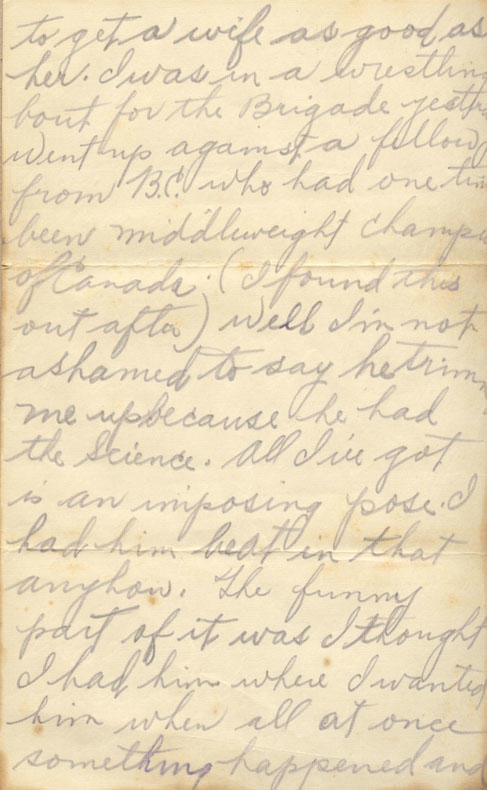 to get a wife as good as
her. I was in a wrestling
bout for the Brigade yestr
Went up against a fellow
from B.C. who had one tim
been middleweight champi
of Canada. (I found this
out after) Well I'm not
ashamed to say he trimm
me up because he had
the Science. All I've got
is an imposing pose. I
had him beat in that
anyhow. The funny
part of it was I thought
I had him where I wanted
him when all at once
something happened and